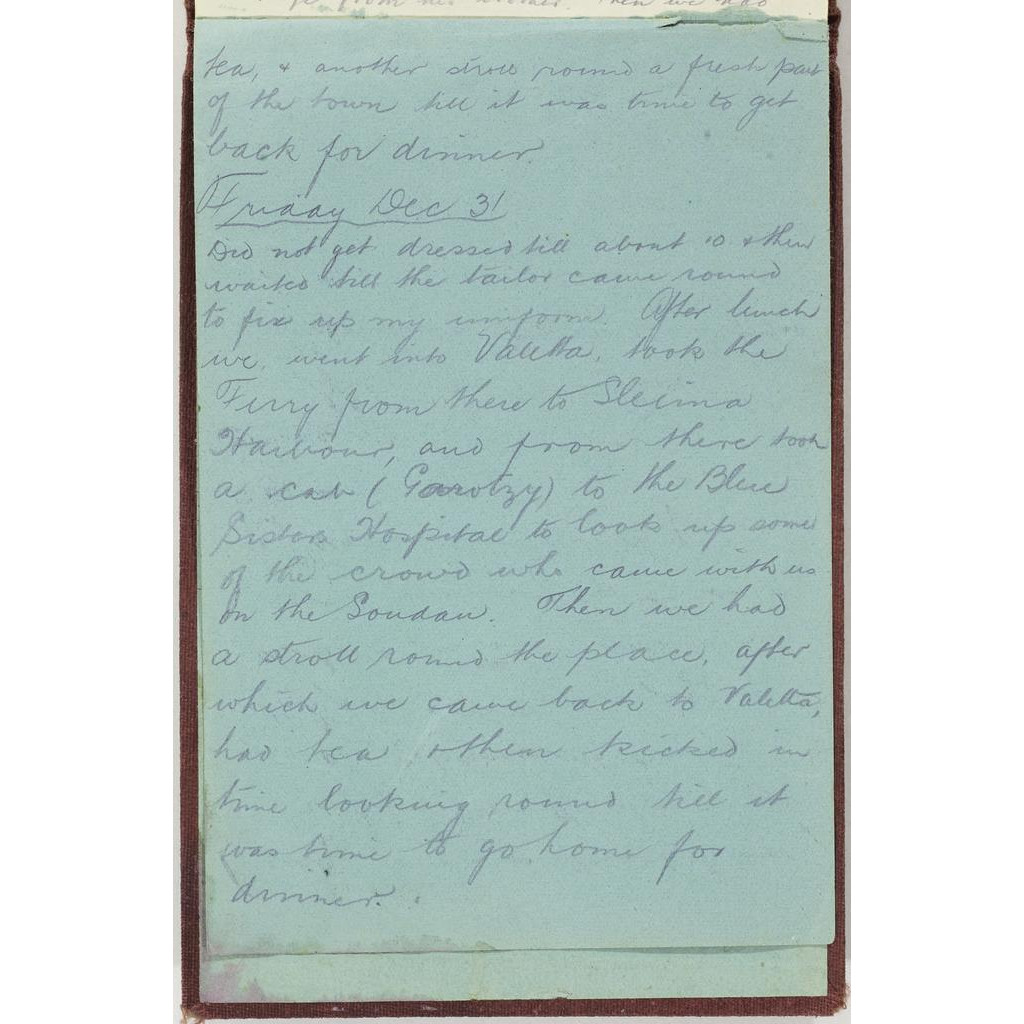 tea, & another stroll round a fresh part
of the town till it was time to get
back for dinner.
Friday Dec 31
Did not get dressed till about 10 & then
waited till the tailor came round
to fix up my uniform. After lunch
we went into Valetta, took the
Ferry from there to Sleima
Harbour, and from there took
a cab (Garotzy) to the Blue
Sisters Hospital to look up some
of the crowd who came with us
on the Soudan. Then we had
a stroll round the place, after
which we came back to Valetta,
had tea & then kicked in
time looking round till it
was time to go home for
dinner.